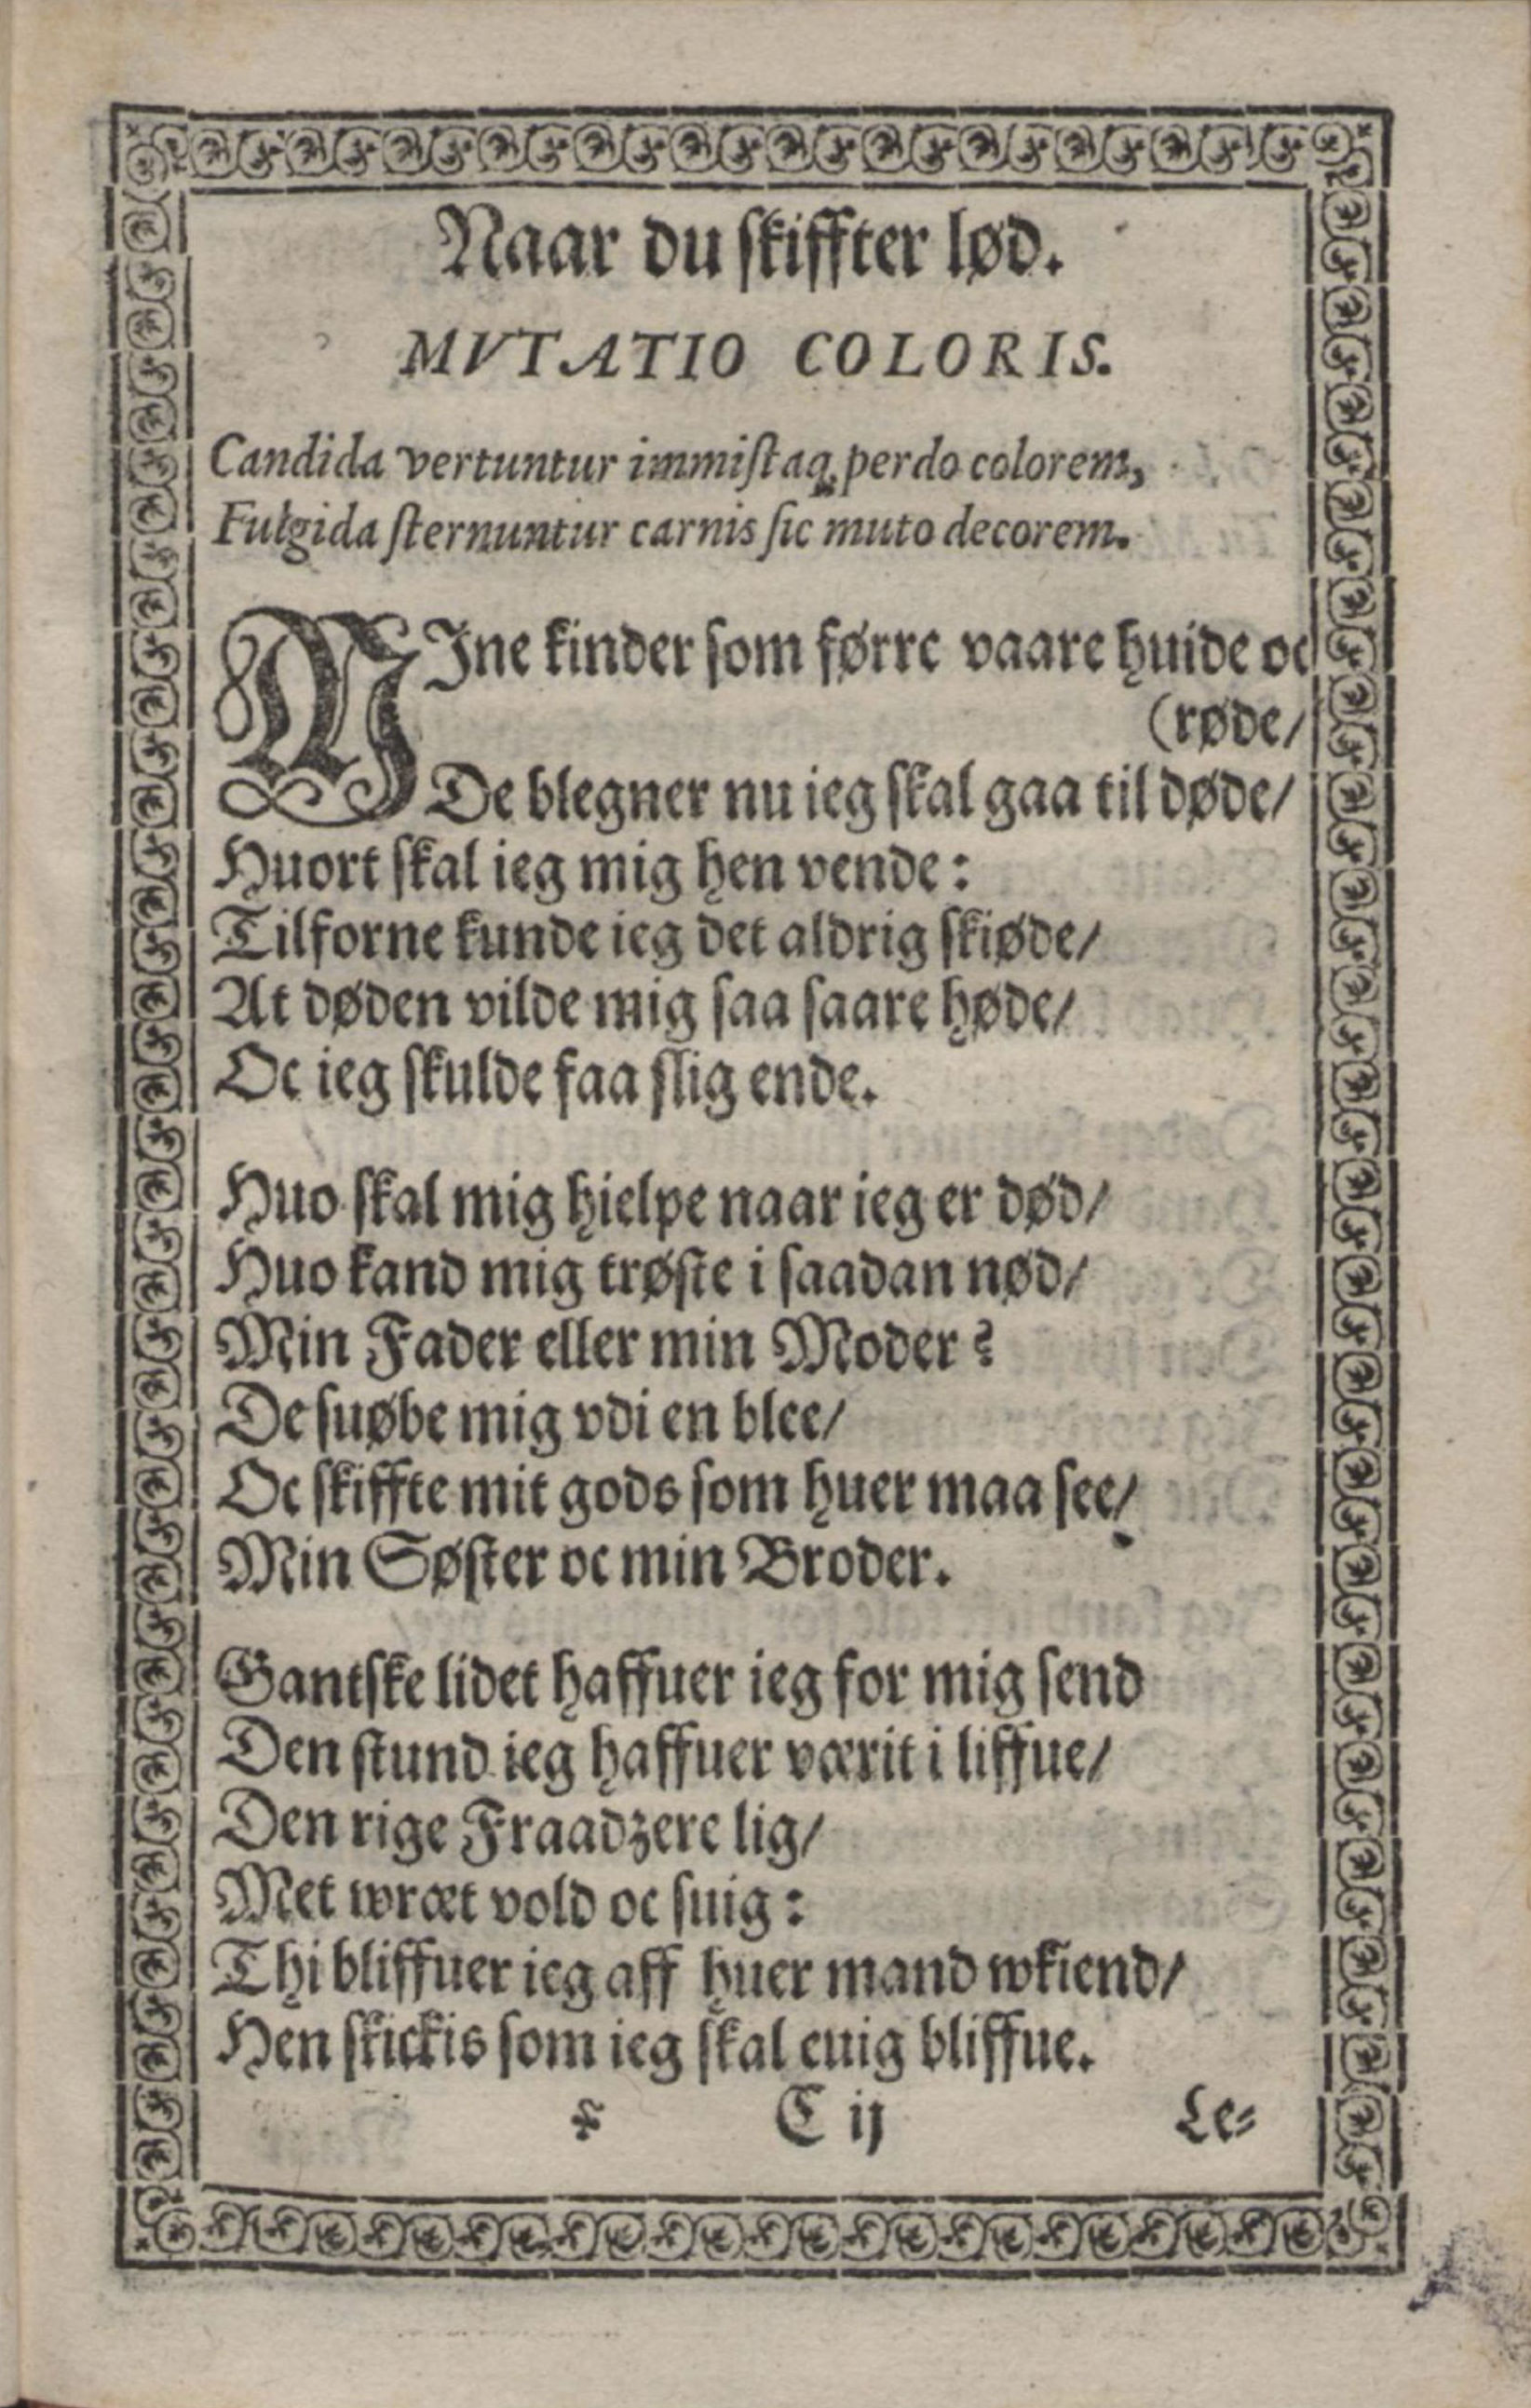 Naar du skiffter lød.
MVTATIO COLORIS.
Candida vertuntur immistaq; perdo colorem,
Fulgida sternuntur carnis sic muto decorem.
MIne kinder somførre vaare huide oc
(røde/
De blegner nu ieg skal gaa til døde/
Huort skal ieg mig hen vende:
Tilforne kunde ieg det aldrig skiøde/
At døden vilde mig saa saare høde/
Oc ieg skulde faa slig ende.
Huo skal mig hielpe naar ieg er død/
Huo kand mig trøste i saadan nød/
Min Fader eller min Moder?
De suøbe mig vdi en blee/
Oc skiffte mit gods som huer maa see/
Min Søster oc min Broder.
Gantske lidet haffuer ieg for mig send
Den stund ieg haffuer værit i liffue/
Den rige Fraadzere lig/
Met wræt vold oc suig:
Thi bliffuer ieg aff huer mand wkiend/
Hen skickis som ieg skal euig bliffue.
C ij Le⸗